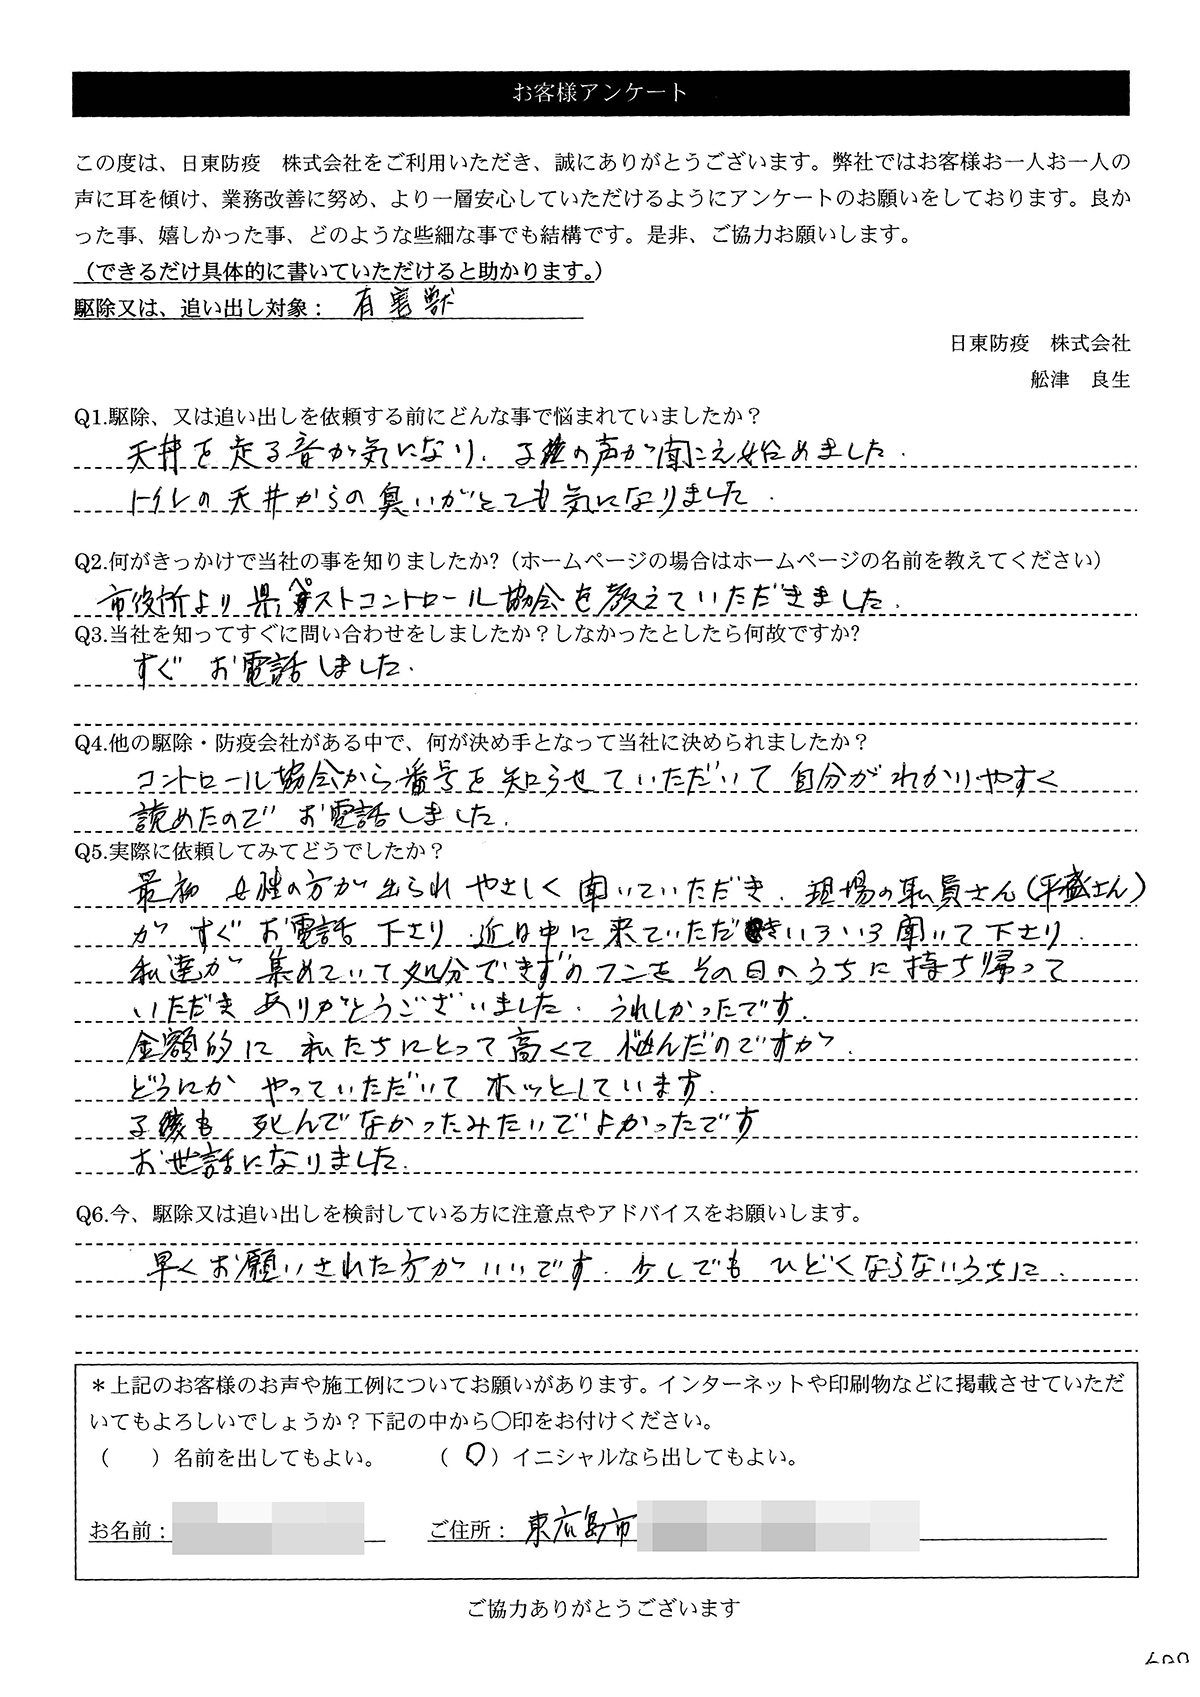 お客様アンケート
この度は、日東防疫　株式会社をご利用いただき、誠にありがとうございます。弊社ではお客様お一人お一人の
声に耳を傾け、業務改善に努め、より一層安心していただけるようにアンケートのお願いをしております。良か
った事、嬉しかった事、どのような些細な事でも結構です。是非、ご協力お願いします。
（できるだけ具体的に書いていただけると助かります。）
駆除又は、追い出し対象： 有害獣
日東防疫　株式会社
舩津　良生
Q1.駆除、又は追い出しを依頼する前にどんな事で悩まれていましたか？
天井を走る音が気になり、子猫の声が聞こえ始めました.
トイレの天井からの臭いがとても気になりました.
Q2.何がきっかけで当社の事を知りましたか?（ホームページの場合はホームページの名前を教えてください）
市役所より県ペストコントロール協会を教えていただきました.
Q3.当社を知ってすぐに問い合わせをしましたか？しなかったとしたら何故ですか?
すぐ お電話しました.
Q4.他の駆除・防疫会社がある中で、何が決め手となって当社に決められましたか？
コントロール協会から番号を知らせていただいて 自分がわかりやすく
読めたので お電話しました.
Q5.実際に依頼してみてどうでしたか？
最初 女性の方が出られ やさしく 聞いていただき、現場の職員さん(平盛さん)
が すぐ お電話 下さり 近日中に来ていただき いろいろ聞いて下さり.
私達が 集めていて処分できずのフンを その日のうちに 持ち帰って
いただき ありがとうございました. うれしかったです.
金額的に 私たちにとって高くて 悩んだのですが.
どうにか やっていただいて ホッとしています.
子猫も 死んでなかったみたいでよかったです
お世話になりました.
Q6.今、駆除又は追い出しを検討している方に注意点やアドバイスをお願いします。
早くお願いされた方がいいです. 少しでも ひどくならないうちに.
＊上記のお客様のお声や施工例についてお願いがあります。インターネットや印刷物などに掲載させていただ
いてもよろしいでしょうか？下記の中から〇印をお付けください。
（　　）名前を出してもよい。　（ 〇 ）イニシャルなら出してもよい。
お名前： ご住所： 東広島市
ご協力ありがとうございます